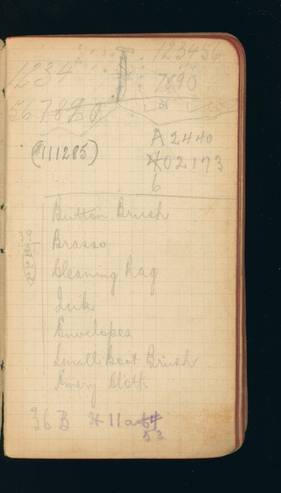 123456
1234
7890
567890
(111285)
A2440
02173
6
Button Brush
Brasso
Cleaning Rag
Ink
Envelopes
Small Boot Brush
Emery Cloth
36 B H 11a 64
53